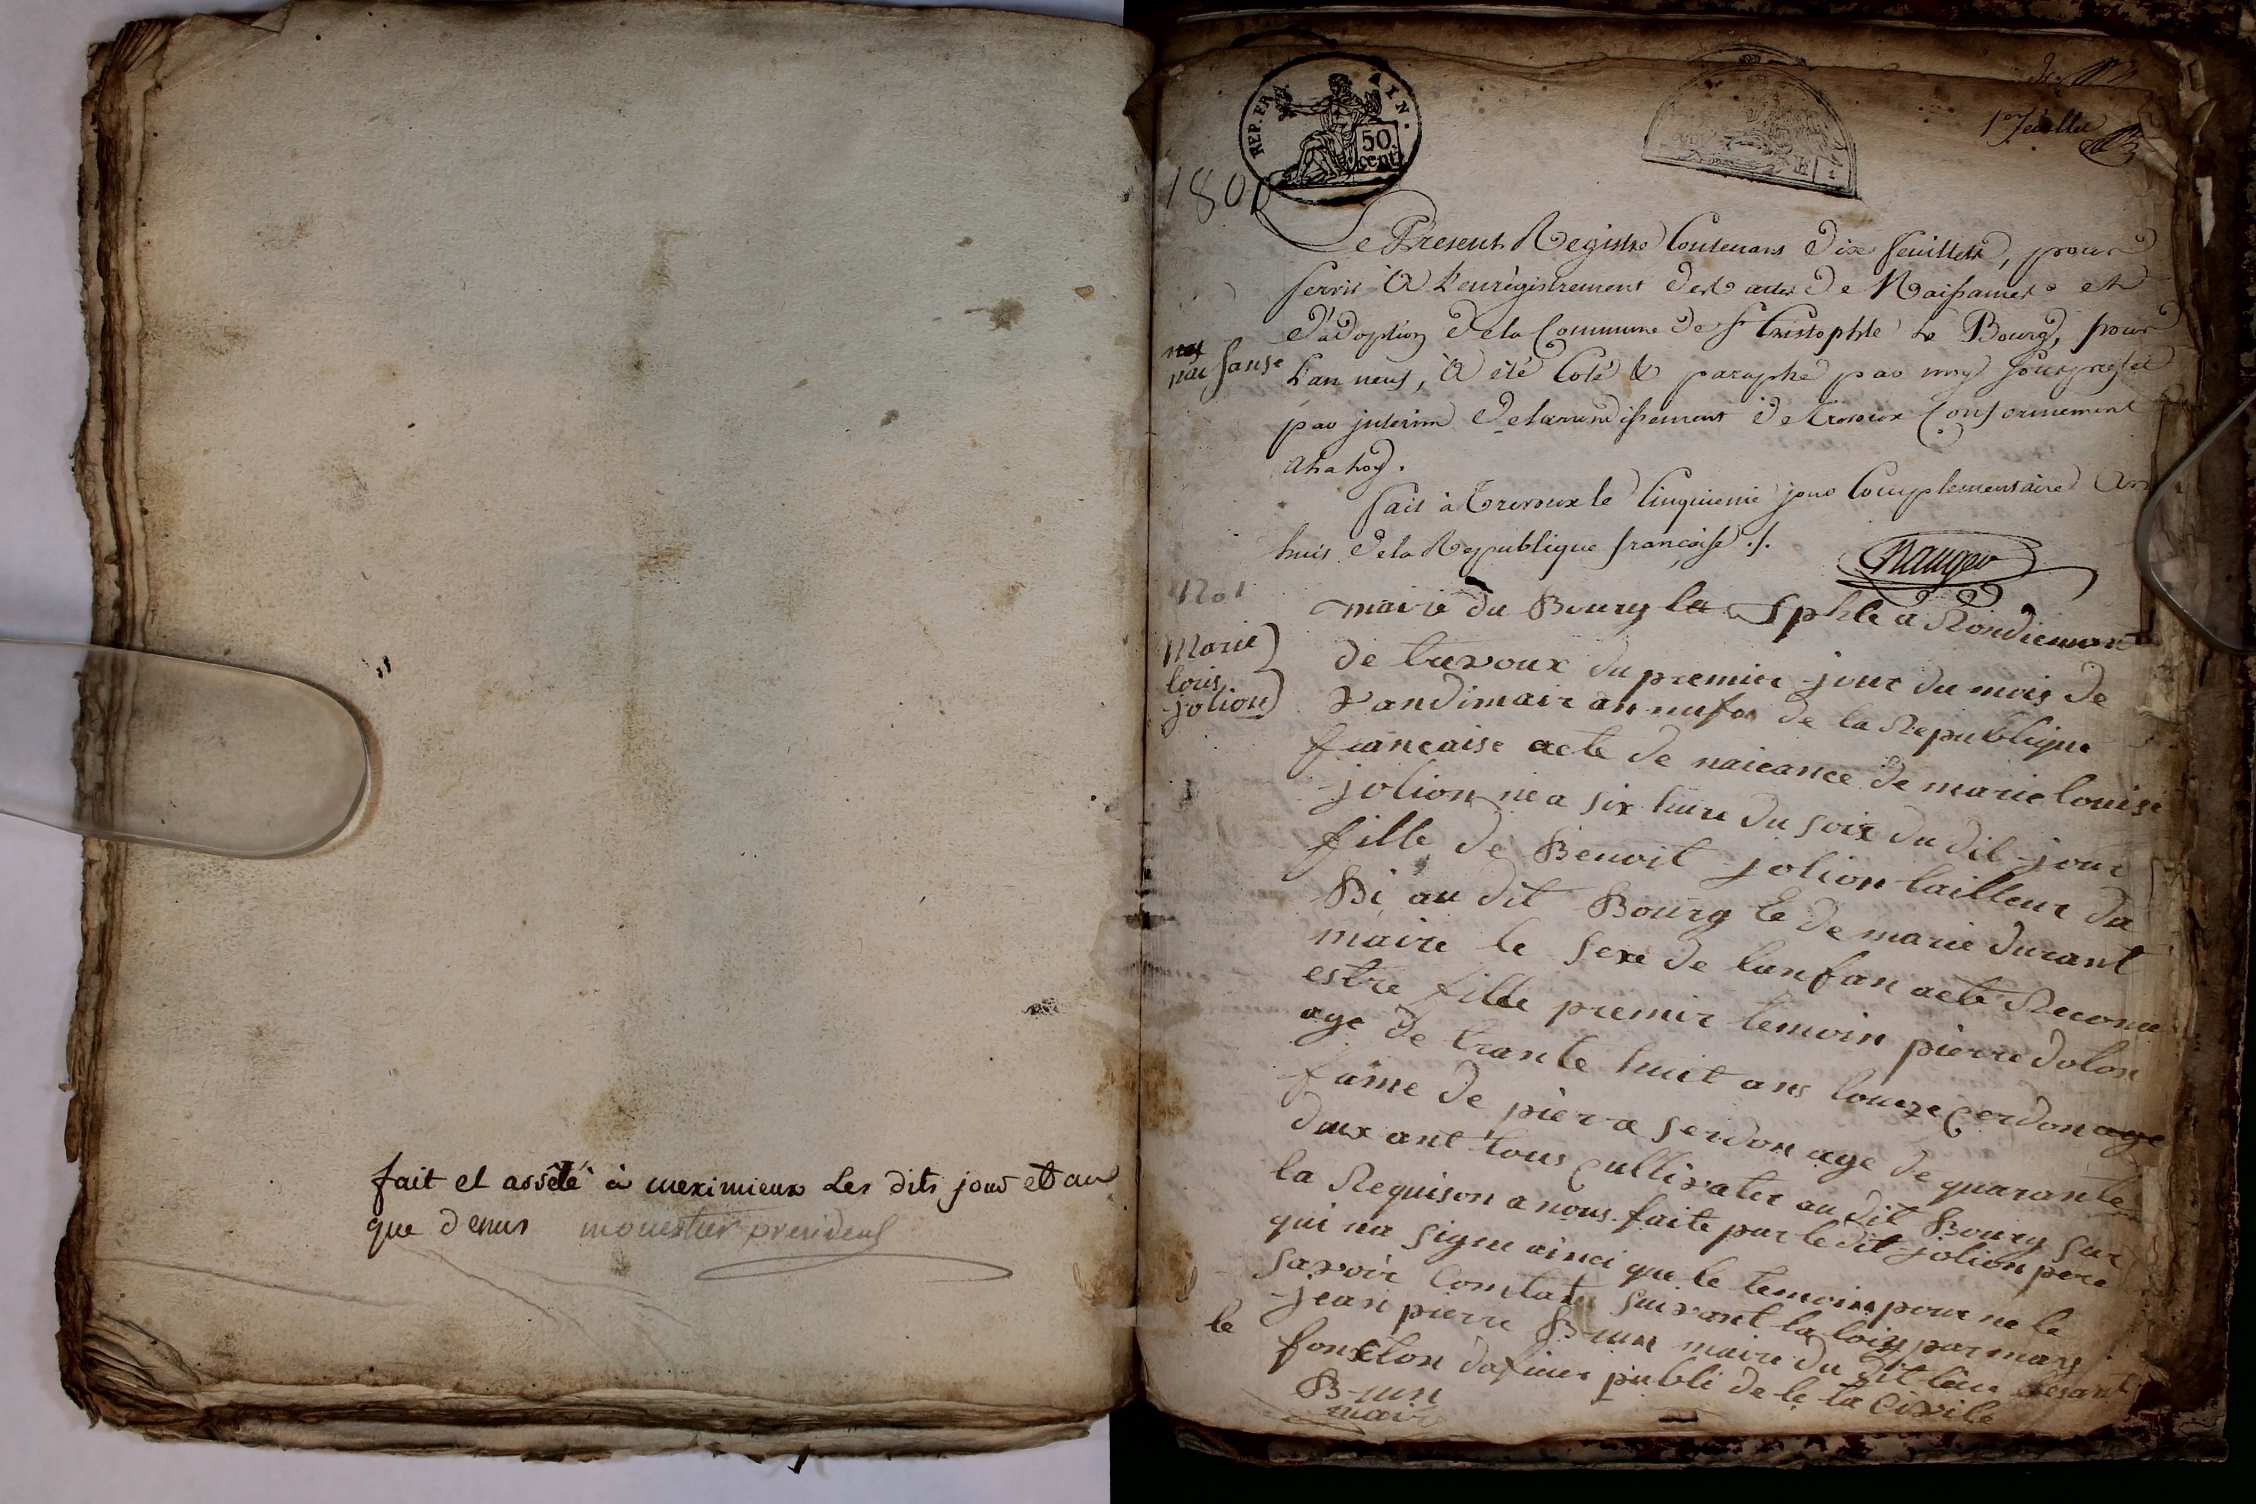 fait et arrêté à meximieux les dits jour et an
que dessus monestier president
REP. FRA
50 cent
1er feuillet
180
Le Present Registre Contenant dix feuillets, pour
servir à L'enrègistrement des actes de Naissances et
d'adoption de la Commune de St Cristophle le Bourg, pour
L'an neuf, à été Coté & paraphé par moy Sousprefet
par interim de larrondissement de trevoux Conformement
à la Loy.
fait à Trevoux le Cinquieme jour Complementaire an
huit de la Republique françoise ./.
Naugev
nai sanse
Marie
louis
jolion
mairie du Bourg St Sphle a Rondiemant
de trevoux du premier jour du mois de
vandimair an nuf de la Republique
francaise acte de naicance de marie louise
jolion ne a six hure du soir du dit jour
fille de Benoit jolion tailleur da
Bi au dit Bourg te de marie durant
maire le sexe de lanfan acte Reconu
estre fille premir temoin pierre dolon
age de trante huit ans louize Cerdon age
fame de pierre serdon age de quarante
daux ant tous cultivater au dit Bourg sur
la Requison a nous faite par le dit jolion pere
qui na signe ainci que le temoins pour ne le
savoir Constate suivant la loix par mary
jean pierre Brun maire du dit lieu fesant
le
fonction dofiuer publi de le ta Civile
Brun
maire